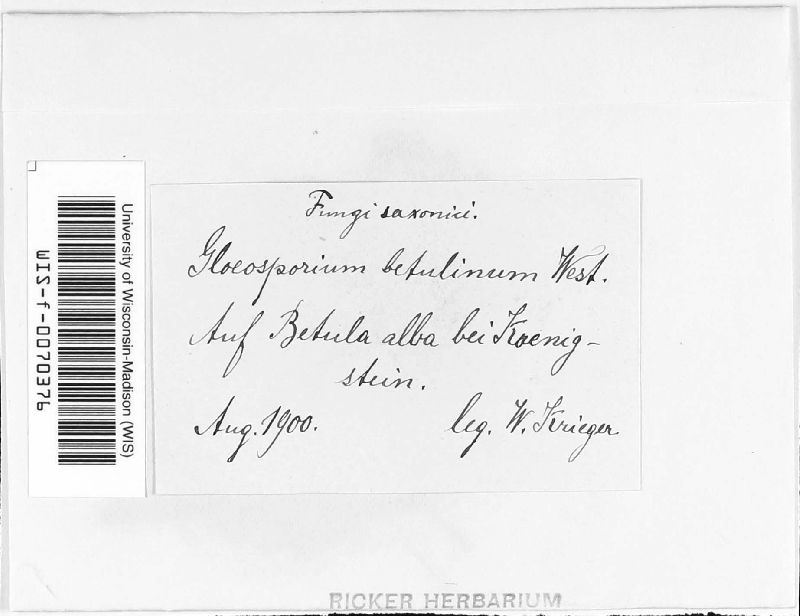 University of Wisconsin-Madison (WIS)
WIS-f-0070376
Fungi saxonici.
Gloeosporium betulinum West.
Auf Betula alba bei Koenig-
stein.
Aug. 1900. leg. W. Krieger
RICKER HERBARIUM